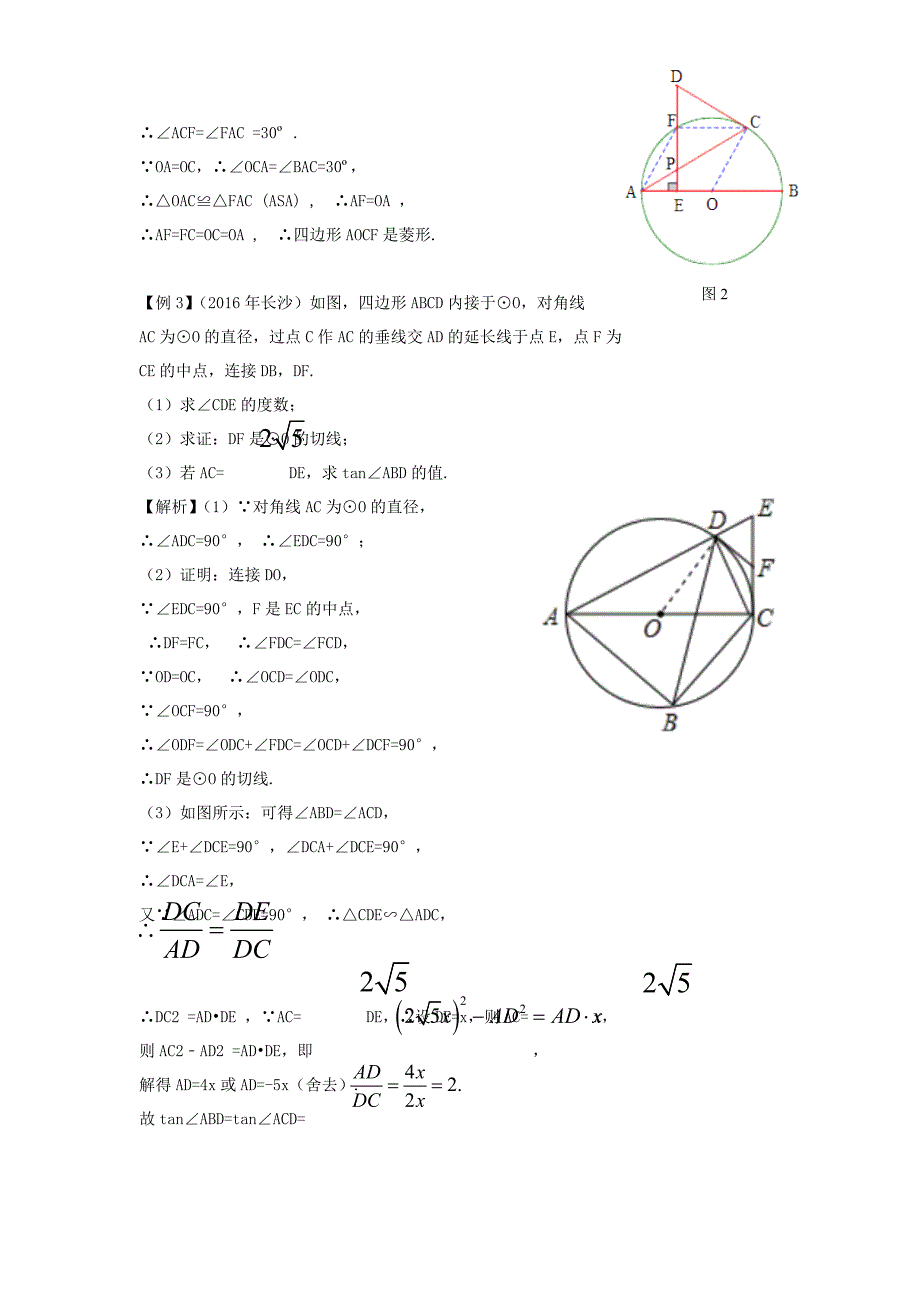 ∴∠ACF=∠FAC =30º .
∵OA=OC，∴∠OCA=∠BAC=30º，
∴△OAC≌△FAC (ASA) ,  ∴AF=OA ，
∴AF=FC=OC=OA ,  ∴四边形AOCF是菱形.
D
F
C
P
A
E
O
B
图2
【例3】（2016年长沙）如图，四边形ABCD内接于⊙O，对角线
AC为⊙O的直径，过点C作AC的垂线交AD的延长线于点E，点F为
CE的中点，连接DB，DF.
（1）求∠CDE的度数；
（2）求证：DF是⊙O的切线；
（3）若AC=2√5DE，求tan∠ABD的值.
【解析】（1）∵对角线AC为⊙O的直径，
∴∠ADC=90°， ∴∠EDC=90°；
（2）证明：连接DO，
∵∠EDC=90°，F是EC的中点，
∴DF=FC，  ∴∠FDC=∠FCD，
∵OD=OC，  ∴∠OCD=∠ODC，
∵∠OCF=90°，
∴∠ODF=∠ODC+∠FDC=∠OCD+∠DCF=90°，
∴DF是⊙O的切线.
E
D
F
A
O
C
B
（3）如图所示：可得∠ABD=∠ACD，
∵∠E+∠DCE=90°，∠DCA+∠DCE=90°，
∴∠DCA=∠E，
又∵∠ADC=∠CDE=90°， ∴△CDE∽△ADC，
∴DC/AD=DE/DC
∴DC2 =AD•DE ，∵AC=2√5DE，∴设DE=x，则AC=2√5x，
则AC2﹣AD2 =AD•DE，即(2√5x)²−AD²=AD·x，
解得AD=4x或AD=-5x（舍去）.
故tan∠ABD=tan∠ACD=AD/DC=4x/2x=2.